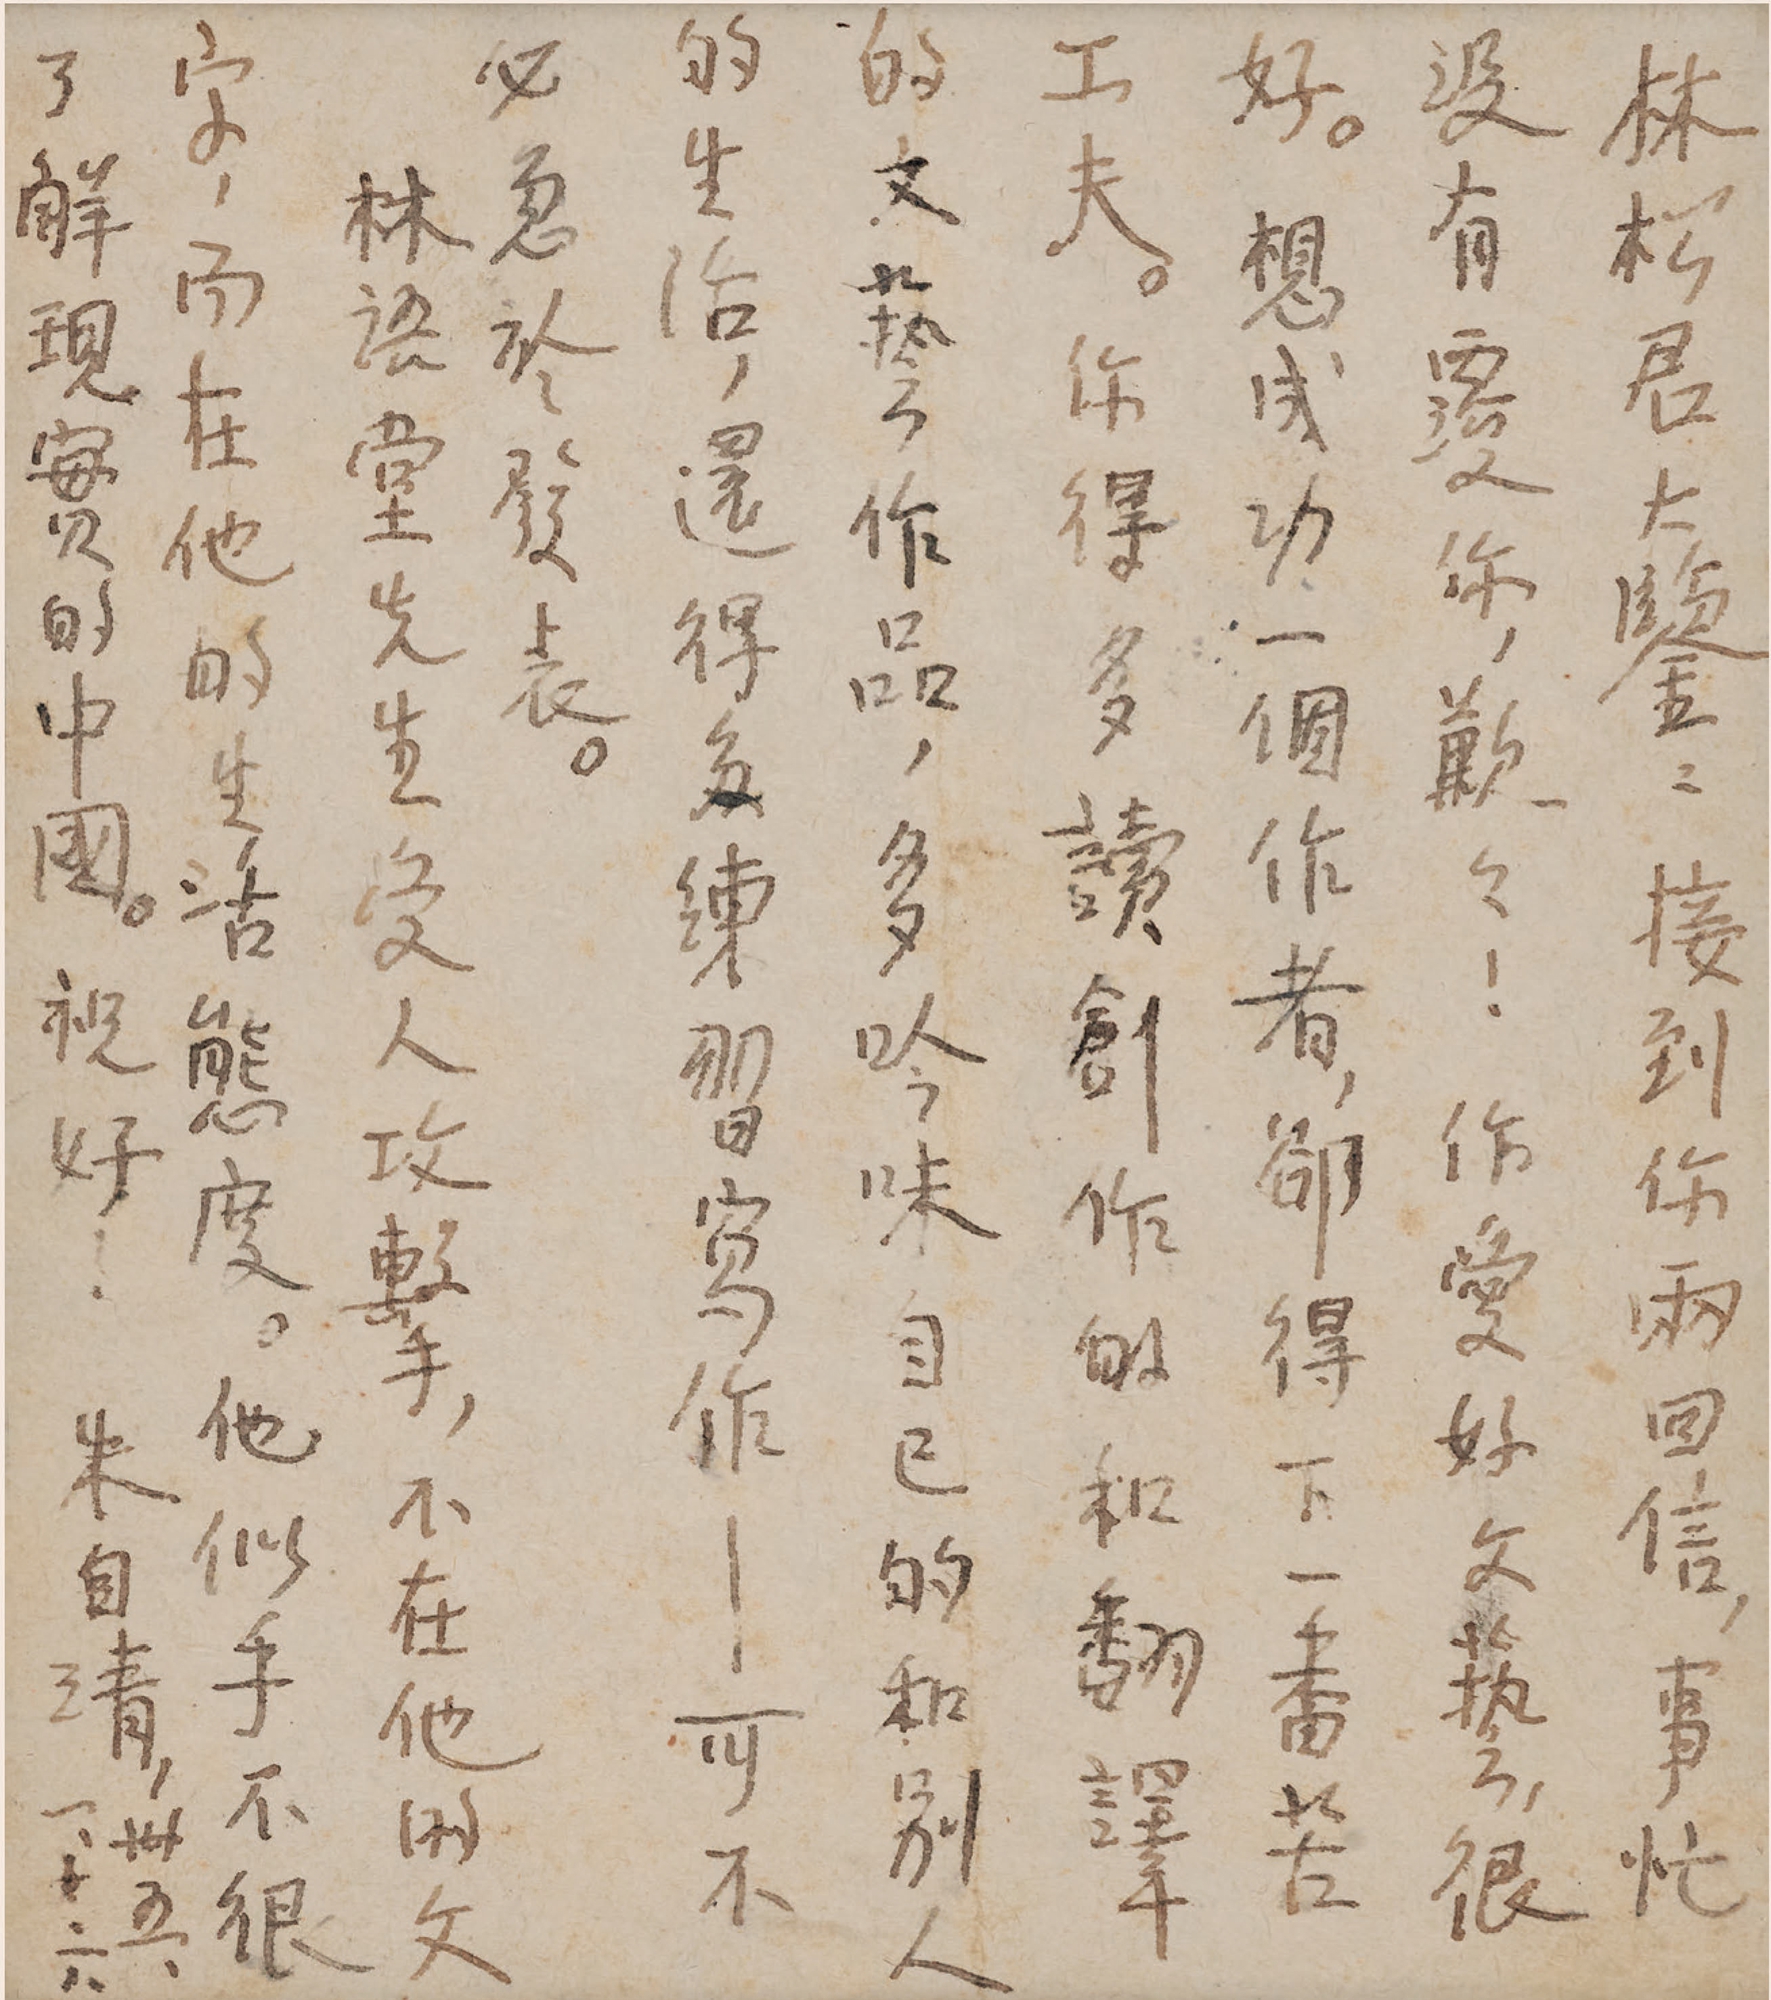 林松君大鑒：接到你兩回信，事忙
没有覆你，歉々！你愛好文藝，很
好。想成功一個作者，卻得下一番苦
工夫。你得多讀創作的和翻譯
的文藝作品，多吟味自己的和別人
的生活，還得多練習寫作——可不
必急於發表。
林語堂先生受人攻擊，不在他的文
字，而在他的生活態度。他似乎不很
了解現實的中國。祝好！ 朱自清，卅五、
一、十六、